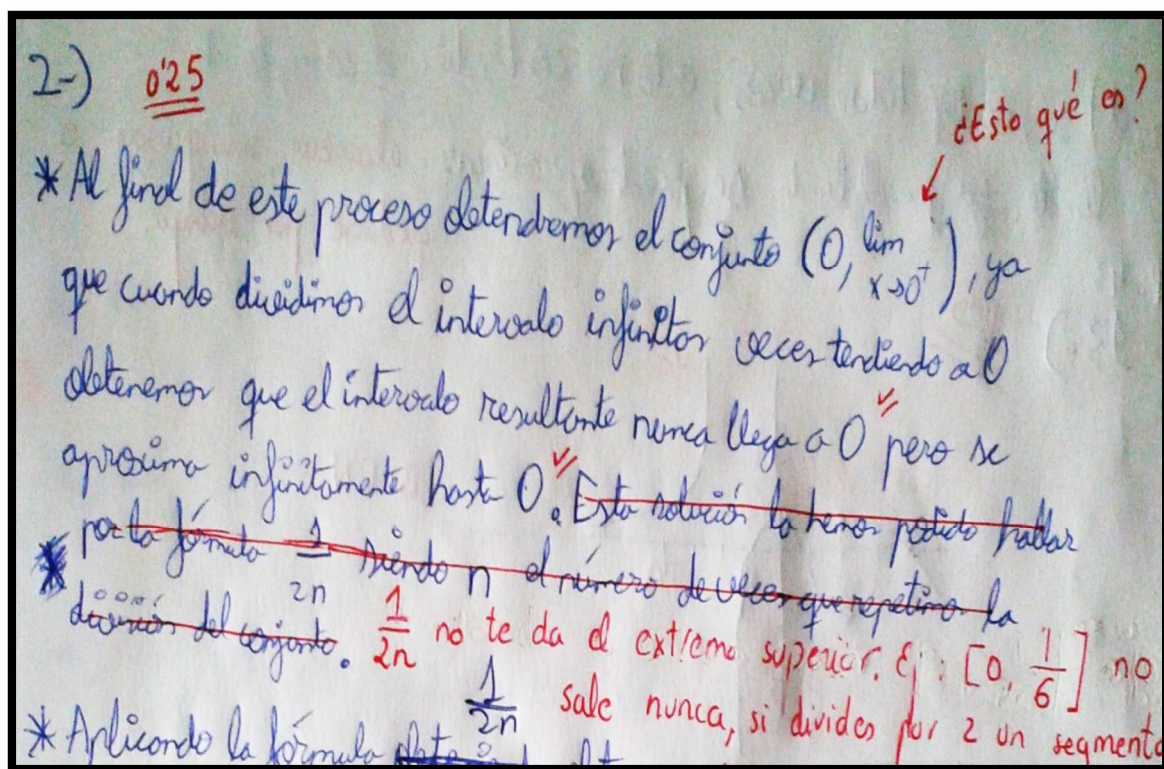 2-) 0'25
¿Esto qué es?
* Al final de este proceso obtendremos el conjunto (0, lim x→0⁺), ya
que cuando dividimos el intervalo infinitos veces tendiendo a 0
obtenemos que el intervalo resultante nunca llega a 0 pero se
aproxima infinitamente hasta 0. Esta solución la hemos podido hallar
por la fórmula 1/2n siendo n el número de veces que repetimos la
división del conjunto. 1/2n no te da el extremo superior. Ej: [0, 1/6] no
sale nunca, si divides por 2 un segmento
* Aplicando la fórmula 1/2n